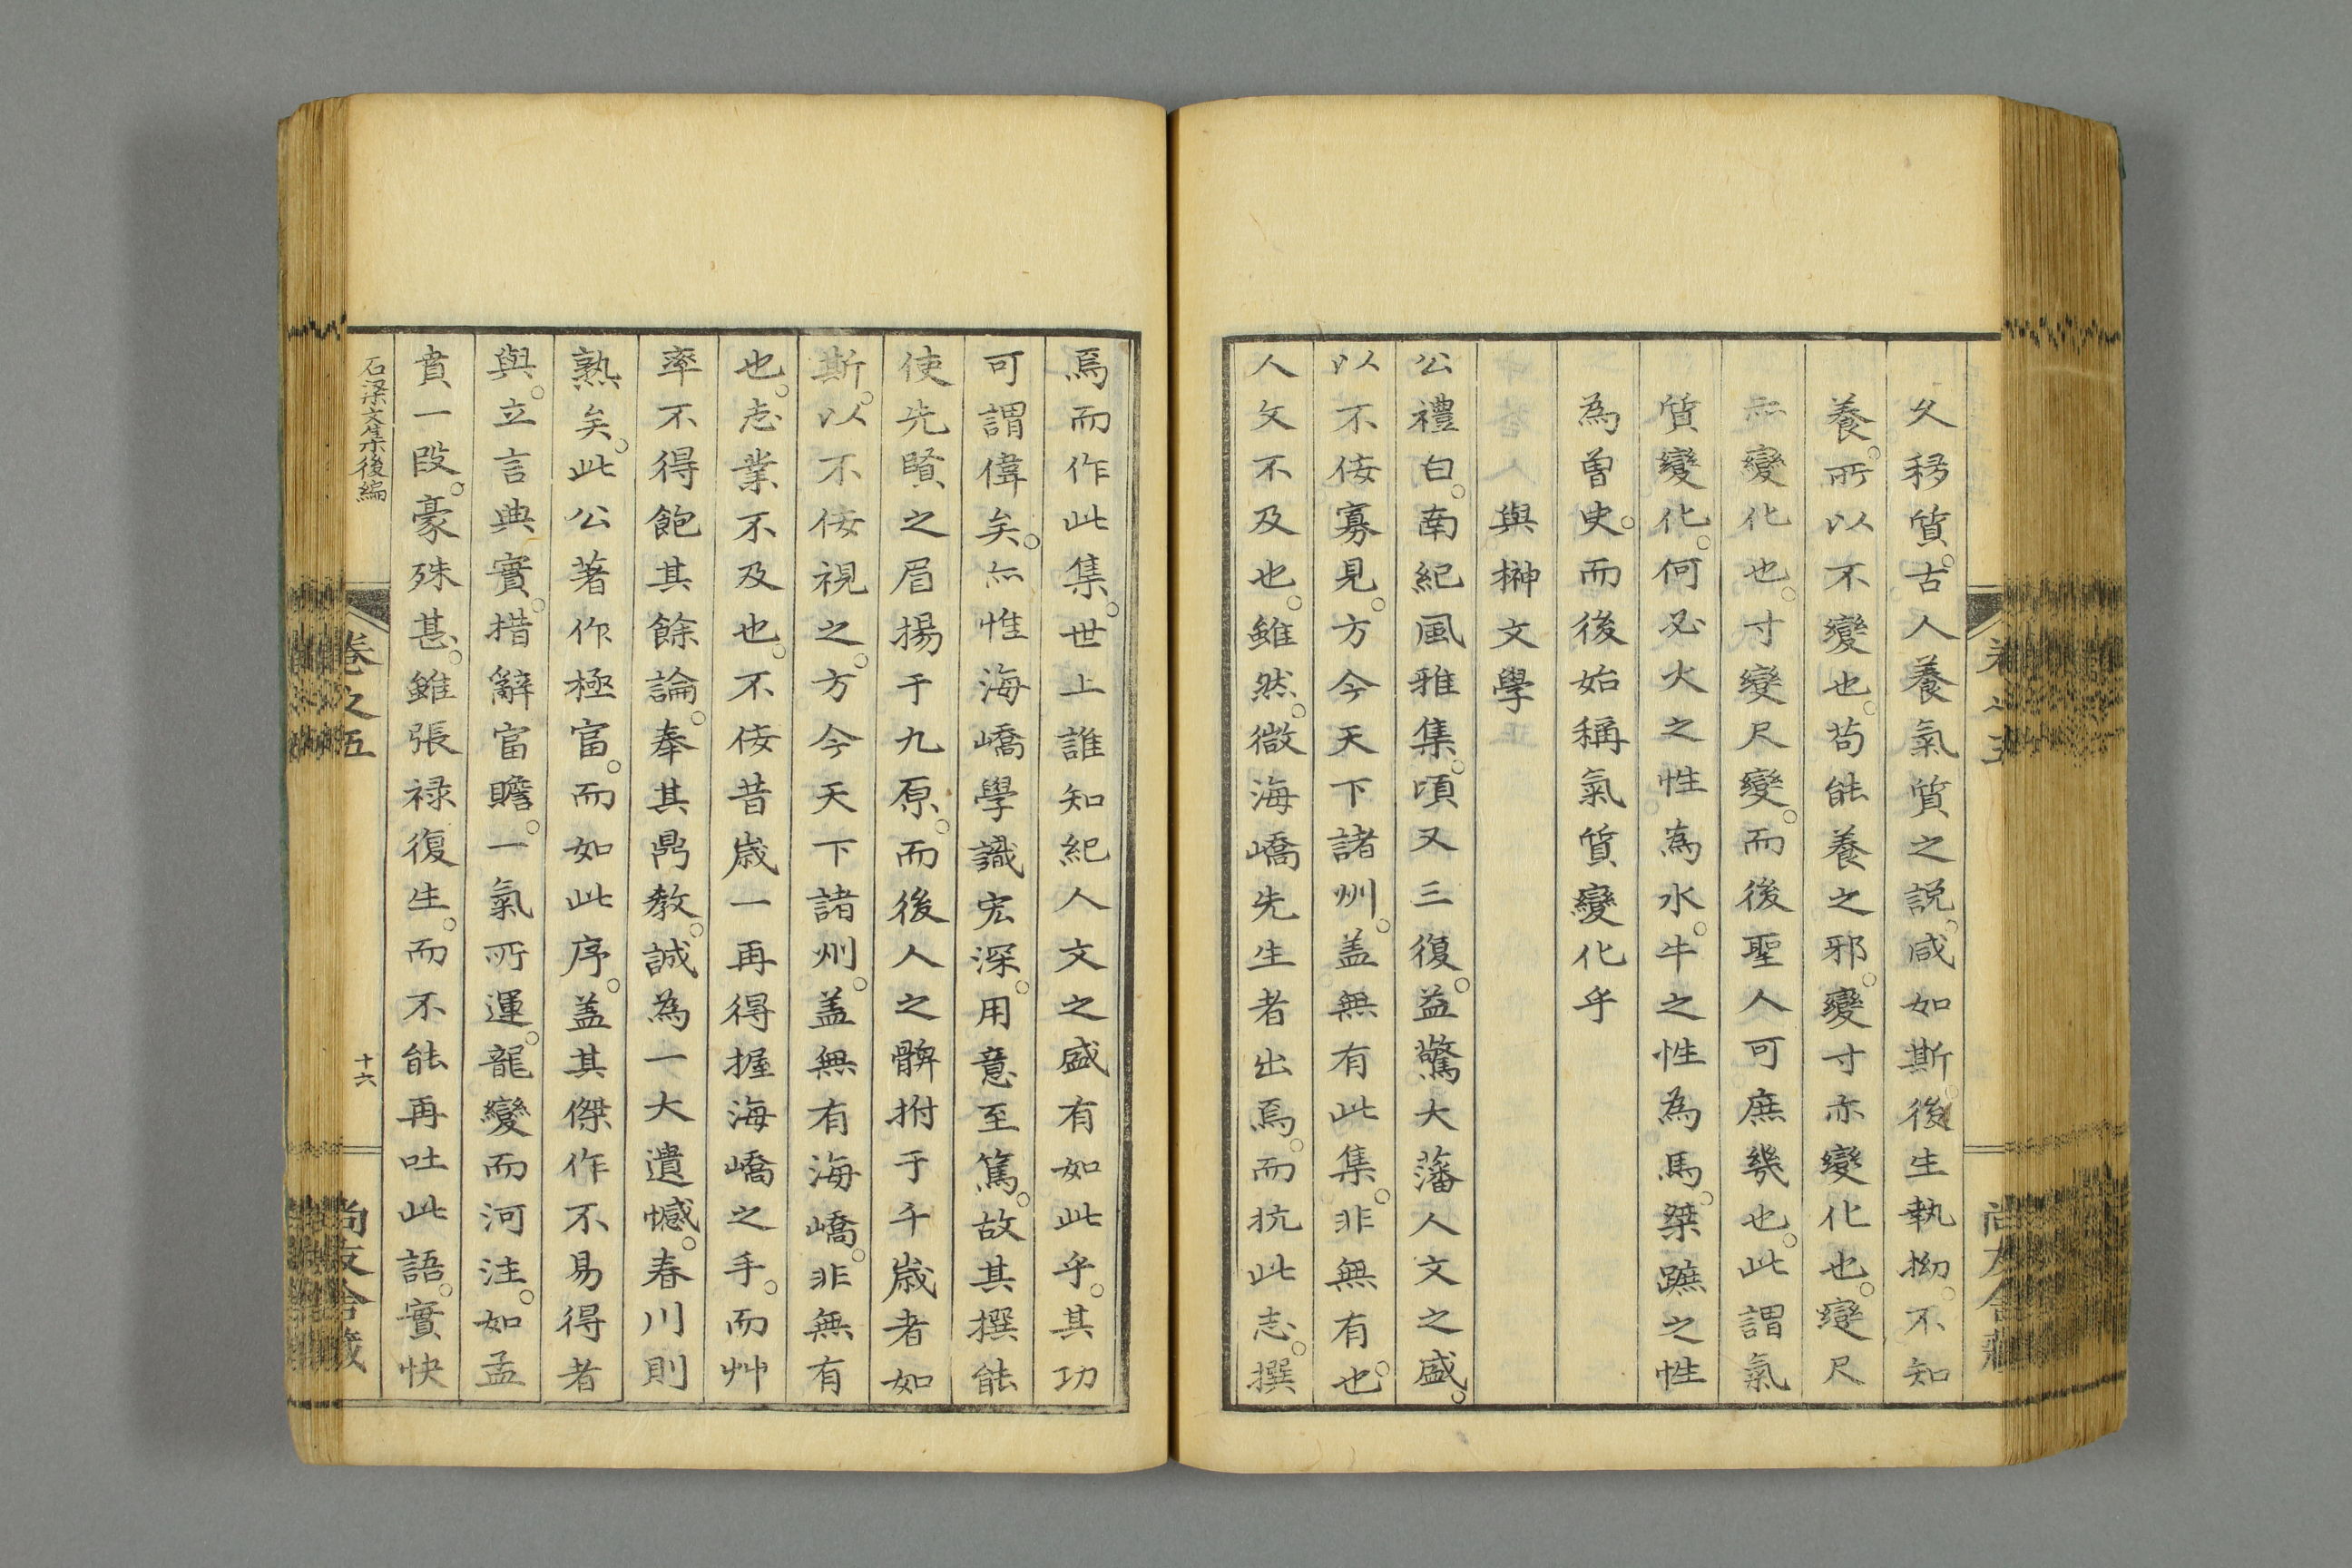 久移質。古人養氣質之説。咸如斯。後生執拗。不知
養。所以不變也。苟能養之邪。變寸亦變化也。變尺
亦變化也。寸變尺變。而後聖人可庶幾也。此謂氣
質變化。何必火之性為水。牛之性為馬。桀蹠之性
為曽史。而後始稱氣質變化乎
與榊文學
公禮白。南紀風雅集。頃又三復。益驚大藩人文之盛。
以不侫寡見。方今天下諸州。盖無有此集。非無有也。
人文不及也。雖然。微海嶠先生者出焉。而抗此志。撰
焉而作此集。世上誰知紀人文之盛有如此乎。其功
可謂偉矣。亦惟海嶠學識宏深。用意至篤。故其撰能
使先賢之眉揚于九原。而後人之髀拊于千歳者如
斯。以不侫視之。方今天下諸州。盖無有海嶠。非無有
也。志業不及也。不侫昔歳一再得握海嶠之手。而艸
率不得飽其餘論。奉其鼎教。誠為一大遺憾。春川則
熟矣。此公著作極富。而如此序。盖其傑作不易得者
與。立言典實。措辭富贍。一氣所運。龍變而河注。如孟
賁一段。豪殊甚。雖張禄復生。而不能再吐此語。實快
石梁文集後編
卷之五
十六
尚友舎藏